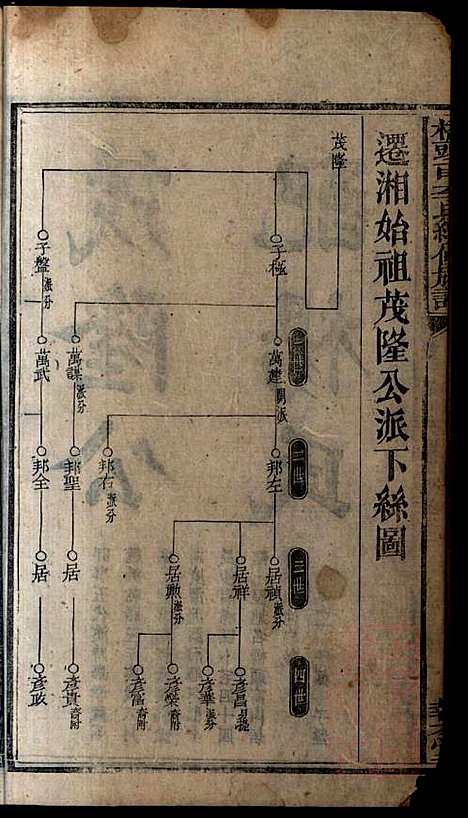 遷湘始祖茂隆公派下絲圖
茂隆
子極
子盤 派分
萬建
萬謀 派分
萬武
三世
邦左
邦右 派分
邦聖
邦全
三世
居禎 派分
居祥
居勲 派分
居
居
四世
彥昌
彥華 派分
彥榮 齊附
彥富 齊附
彥貴 齊附
彥政